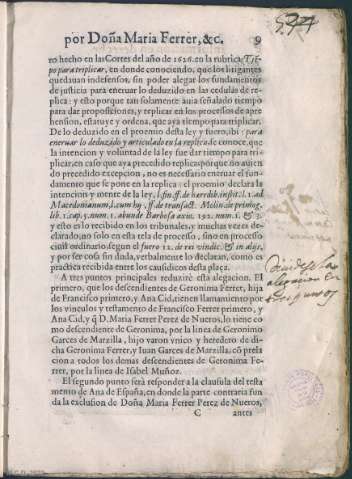 por Doña Maria Ferrer, &c. 9
ro hecho en las Cortes del año de 1626. en la rubrica, Tie-
po para triplicar, en donde conociendo, que los litigantes
quedauan indefensos, sin poder alegar los fundamentos
de justicia para eneruar lo deduzido en las cedulas de re-
plica: y esto porque tan solamente auia señalado tiempo
para dar proposiciones, y replicar en los processos de apre
hension, estatuye y ordena, que aya tiempo para triplicar.
De lo deduzido en el proemio desta ley y fuero, ibi: para
eneruar lo deduzido y articulado en la replica: se conoce, que
la intencion y voluntad de la ley fue dar tiempo para tri-
plicar, en caso que aya precedido replica; porque no auien
do precedido excepcion, no es necessario eneruar el fun-
damento que se pone en la replica: el proemio declara la
intencion y mente de la ley, l. fin. ff. de hæredib. instit. l. 1. ad
Macedonianum, l. cum hi, ff. de transact. Molin. de primog.
lib. 1. cap. 5. num. 1. abunde Barbosa axio. 192. num. 1. & 3.
y esto es lo recibido en los tribunales, y muchas vezes de-
clarado, no solo en esta tela de processo, sino en processo
ciuil ordinario, segun el fuero 12. de rei vindic. & in alijs,
y por ser cosa sin duda, verbalmente lo declaran, como es
practica recibida entre los causidicos desta plaça.
A tres puntos principales reduziré esta alegacion. El
primero, que los descendientes de Geronima Ferrer, hija
de Francisco primero, y Ana Cid, tienen llamamiento por
los vinculos y testamento de Francisco Ferrer primero, y
Ana Cid, y q̃ D. Maria Ferrer Perez de Nueros, lo tiene co
mo descendiente de Geronima, por la linea de Geronimo
Garces de Marzilla, hijo varon vnico y heredero de di-
cha Geronima Ferrer, y Iuan Garces de Marzilla, cõ prela
cion a todos los demas descendientes de Geronima Fe-
rrer, por la linea de Isabel Muñoz.
El segundo punto será responder a la clausula del testa
mento de Ana de España, en donde la parte contraria fun
da la exclusion de Doña Maria Ferrer Perez de Nueros,
C antes
Diuide la
alegacion en
tres puntos